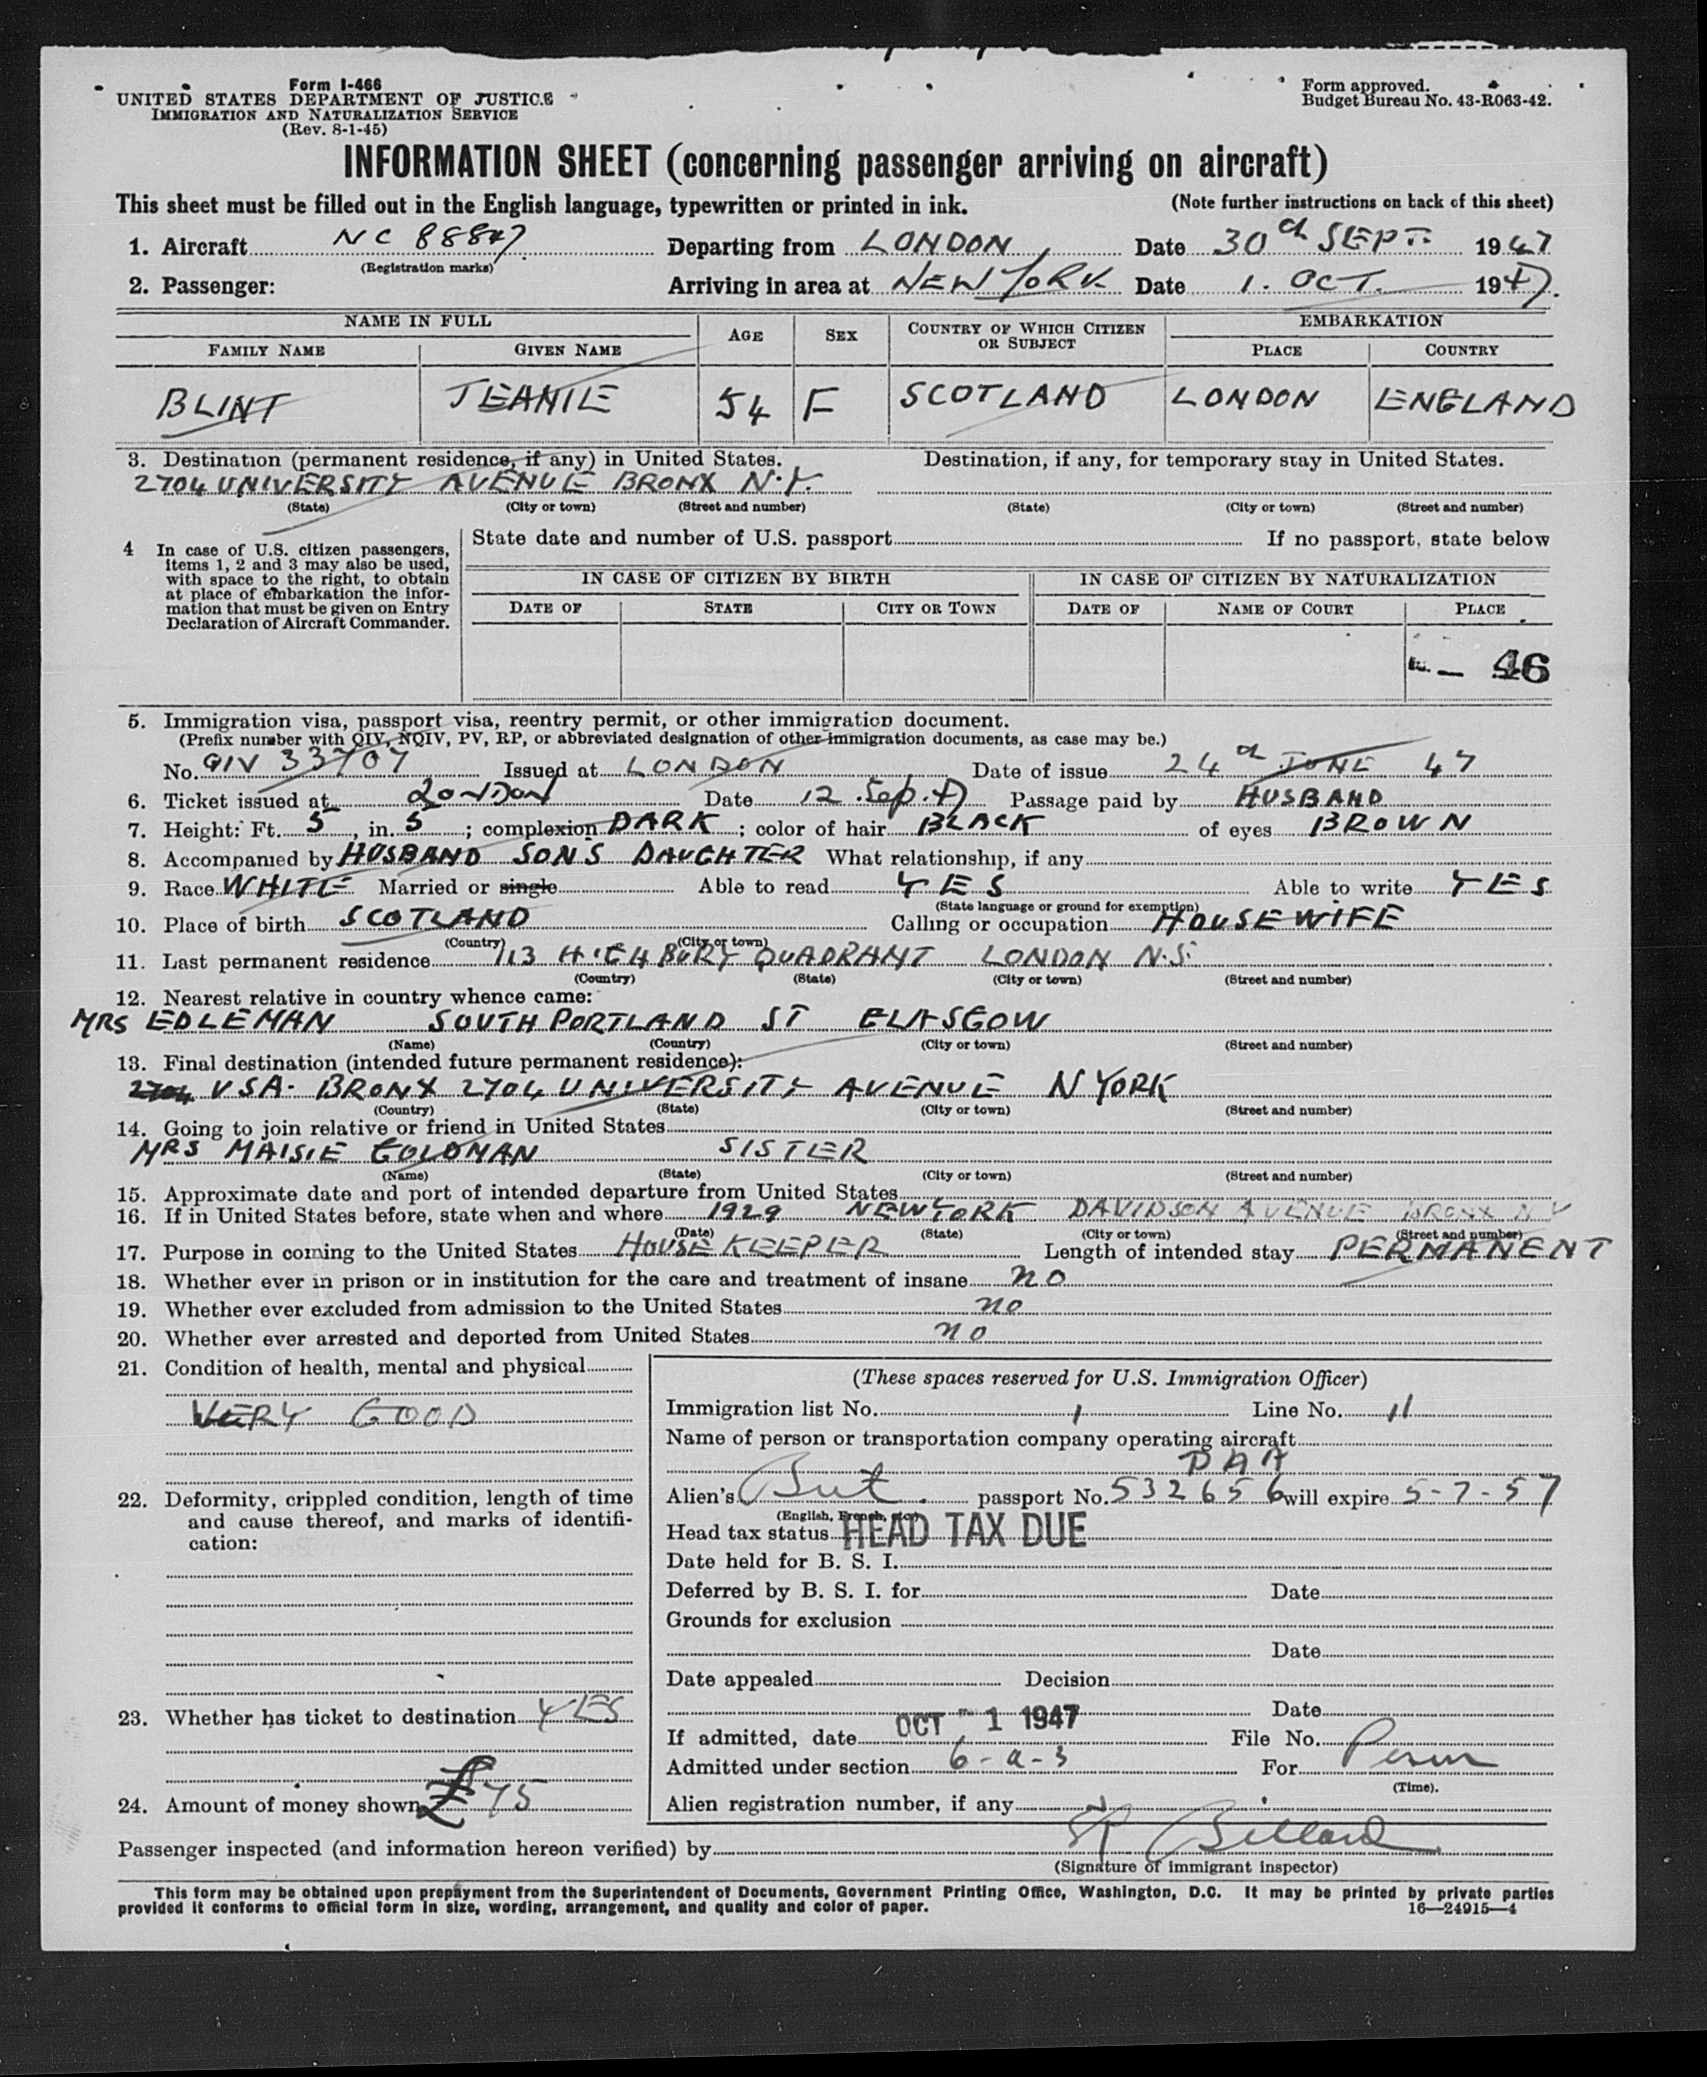 Form I-466
UNITED STATES DEPARTMENT OF JUSTICE
IMMIGRATION AND NATURALIZATION SERVICE
(Rev. 8-1-45)
Form approved.
Budget Bureau No. 43-R063-42.
INFORMATION SHEET (concerning passenger arriving on aircraft)
This sheet must be filled out in the English language, typewritten or printed in ink. (Note further instructions on back of this sheet)
1. Aircraft NC 88847 Departing from LONDON Date 30th SEPT. 1947
(Registration marks)
2. Passenger: Arriving in area at NEW YORK Date 1. OCT. 1947.
NAME IN FULL AGE SEX COUNTRY OF WHICH CITIZEN OR SUBJECT EMBARKATION
FAMILY NAME GIVEN NAME PLACE COUNTRY
BLINT JEANIE 54 F SCOTLAND LONDON ENGLAND
3. Destination (permanent residence, if any) in United States. Destination, if any, for temporary stay in United States.
2704 UNIVERSITY AVENUE BRONX N.Y.
(State) (City or town) (Street and number) (State) (City or town) (Street and number)
4 In case of U.S. citizen passengers, items 1, 2 and 3 may also be used, with space to the right, to obtain at place of embarkation the information that must be given on Entry Declaration of Aircraft Commander.
State date and number of U.S. passport If no passport, state below
IN CASE OF CITIZEN BY BIRTH IN CASE OF CITIZEN BY NATURALIZATION
DATE OF STATE CITY OR TOWN DATE OF NAME OF COURT PLACE
46
5. Immigration visa, passport visa, reentry permit, or other immigration document.
(Prefix number with QIV, NQIV, PV, RP, or abbreviated designation of other immigration documents, as case may be.)
No. QIV 33707 Issued at LONDON Date of issue 24th JUNE 47
6. Ticket issued at LONDON Date 12. Sep. 47 Passage paid by HUSBAND
7. Height: Ft. 5, in. 5; complexion DARK; color of hair BLACK of eyes BROWN
8. Accompanied by HUSBAND SONS DAUGHTER What relationship, if any
9. Race WHITE Married or single Able to read YES Able to write YES
(State language or ground for exemption)
10. Place of birth SCOTLAND Calling or occupation HOUSEWIFE
(Country) (City or town)
11. Last permanent residence 113 HIGHBURY QUADRANT LONDON N.5.
(Country) (State) (City or town) (Street and number)
12. Nearest relative in country whence came:
MRS EDLEMAN SOUTH PORTLAND ST GLASGOW
(Name) (Country) (City or town) (Street and number)
13. Final destination (intended future permanent residence):
2704 USA. BRONX 2704 UNIVERSITY AVENUE N YORK
(Country) (State) (City or town) (Street and number)
14. Going to join relative or friend in United States
MRS MAISIE GOLDMAN SISTER
(Name) (State) (City or town) (Street and number)
15. Approximate date and port of intended departure from United States
16. If in United States before, state when and where 1929 NEW YORK DAVIDSON AVENUE BRONX N Y
(Date) (State) (City or town) (Street and number)
17. Purpose in coming to the United States HOUSE KEEPER Length of intended stay PERMANENT
18. Whether ever in prison or in institution for the care and treatment of insane no
19. Whether ever excluded from admission to the United States no
20. Whether ever arrested and deported from United States no
21. Condition of health, mental and physical
VERY GOOD
22. Deformity, crippled condition, length of time and cause thereof, and marks of identification:
23. Whether has ticket to destination YES
24. Amount of money shown £75
(These spaces reserved for U.S. Immigration Officer)
Immigration list No. 1 Line No. 11
Name of person or transportation company operating aircraft
PAA
Alien's Brit. passport No. 532656 will expire 5-7-57
(English, French, etc.)
Head tax status HEAD TAX DUE
Date held for B. S. I.
Deferred by B. S. I. for Date
Grounds for exclusion
Date
Date appealed Decision
Date
If admitted, date OCT - 1 1947 File No.
Admitted under section 6-a-3 For Perm
(Time).
Alien registration number, if any
Passenger inspected (and information hereon verified) by
(Signature of immigrant inspector)
This form may be obtained upon prepayment from the Superintendent of Documents, Government Printing Office, Washington, D.C. It may be printed by private parties
provided it conforms to official form in size, wording, arrangement, and quality and color of paper. 16—24915—4